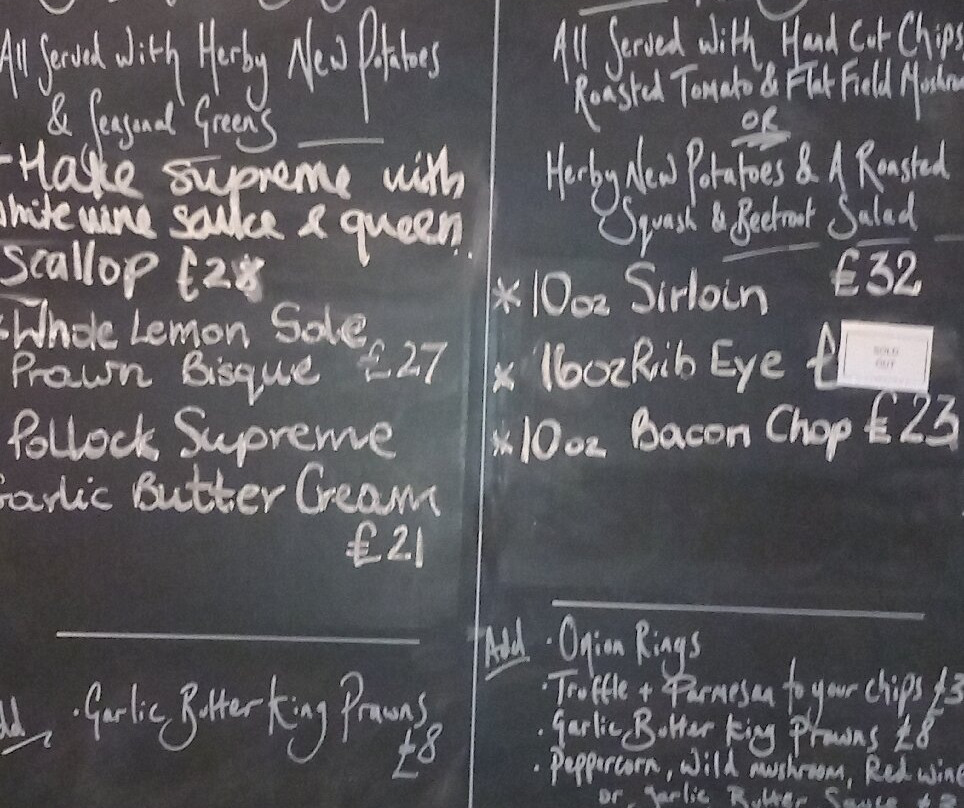 All Served with Herby New Potatoes
& Seasonal Greens
- Hake supreme with
white wine sauce & queen
Scallop £28
Whole Lemon Sole
Prawn Bisque £27
Pollock Supreme
Garlic Butter Cream
£21
Add · Garlic Butter King Prawns
£8
All Served with Hand Cut Chips
Roasted Tomato & Flat Field
OR
Herby New Potatoes & A Roasted
Squash & Beetroot Salad
* 10oz Sirloin £32
* 16oz Rib Eye £
SOLD
OUT
* 10oz Bacon Chop £23
Add · Onion Rings
· Truffle + Parmesan to your chips £3
· Garlic Butter King Prawns £8
· Peppercorn, Wild mushroom, Red wine
or, Garlic Butter